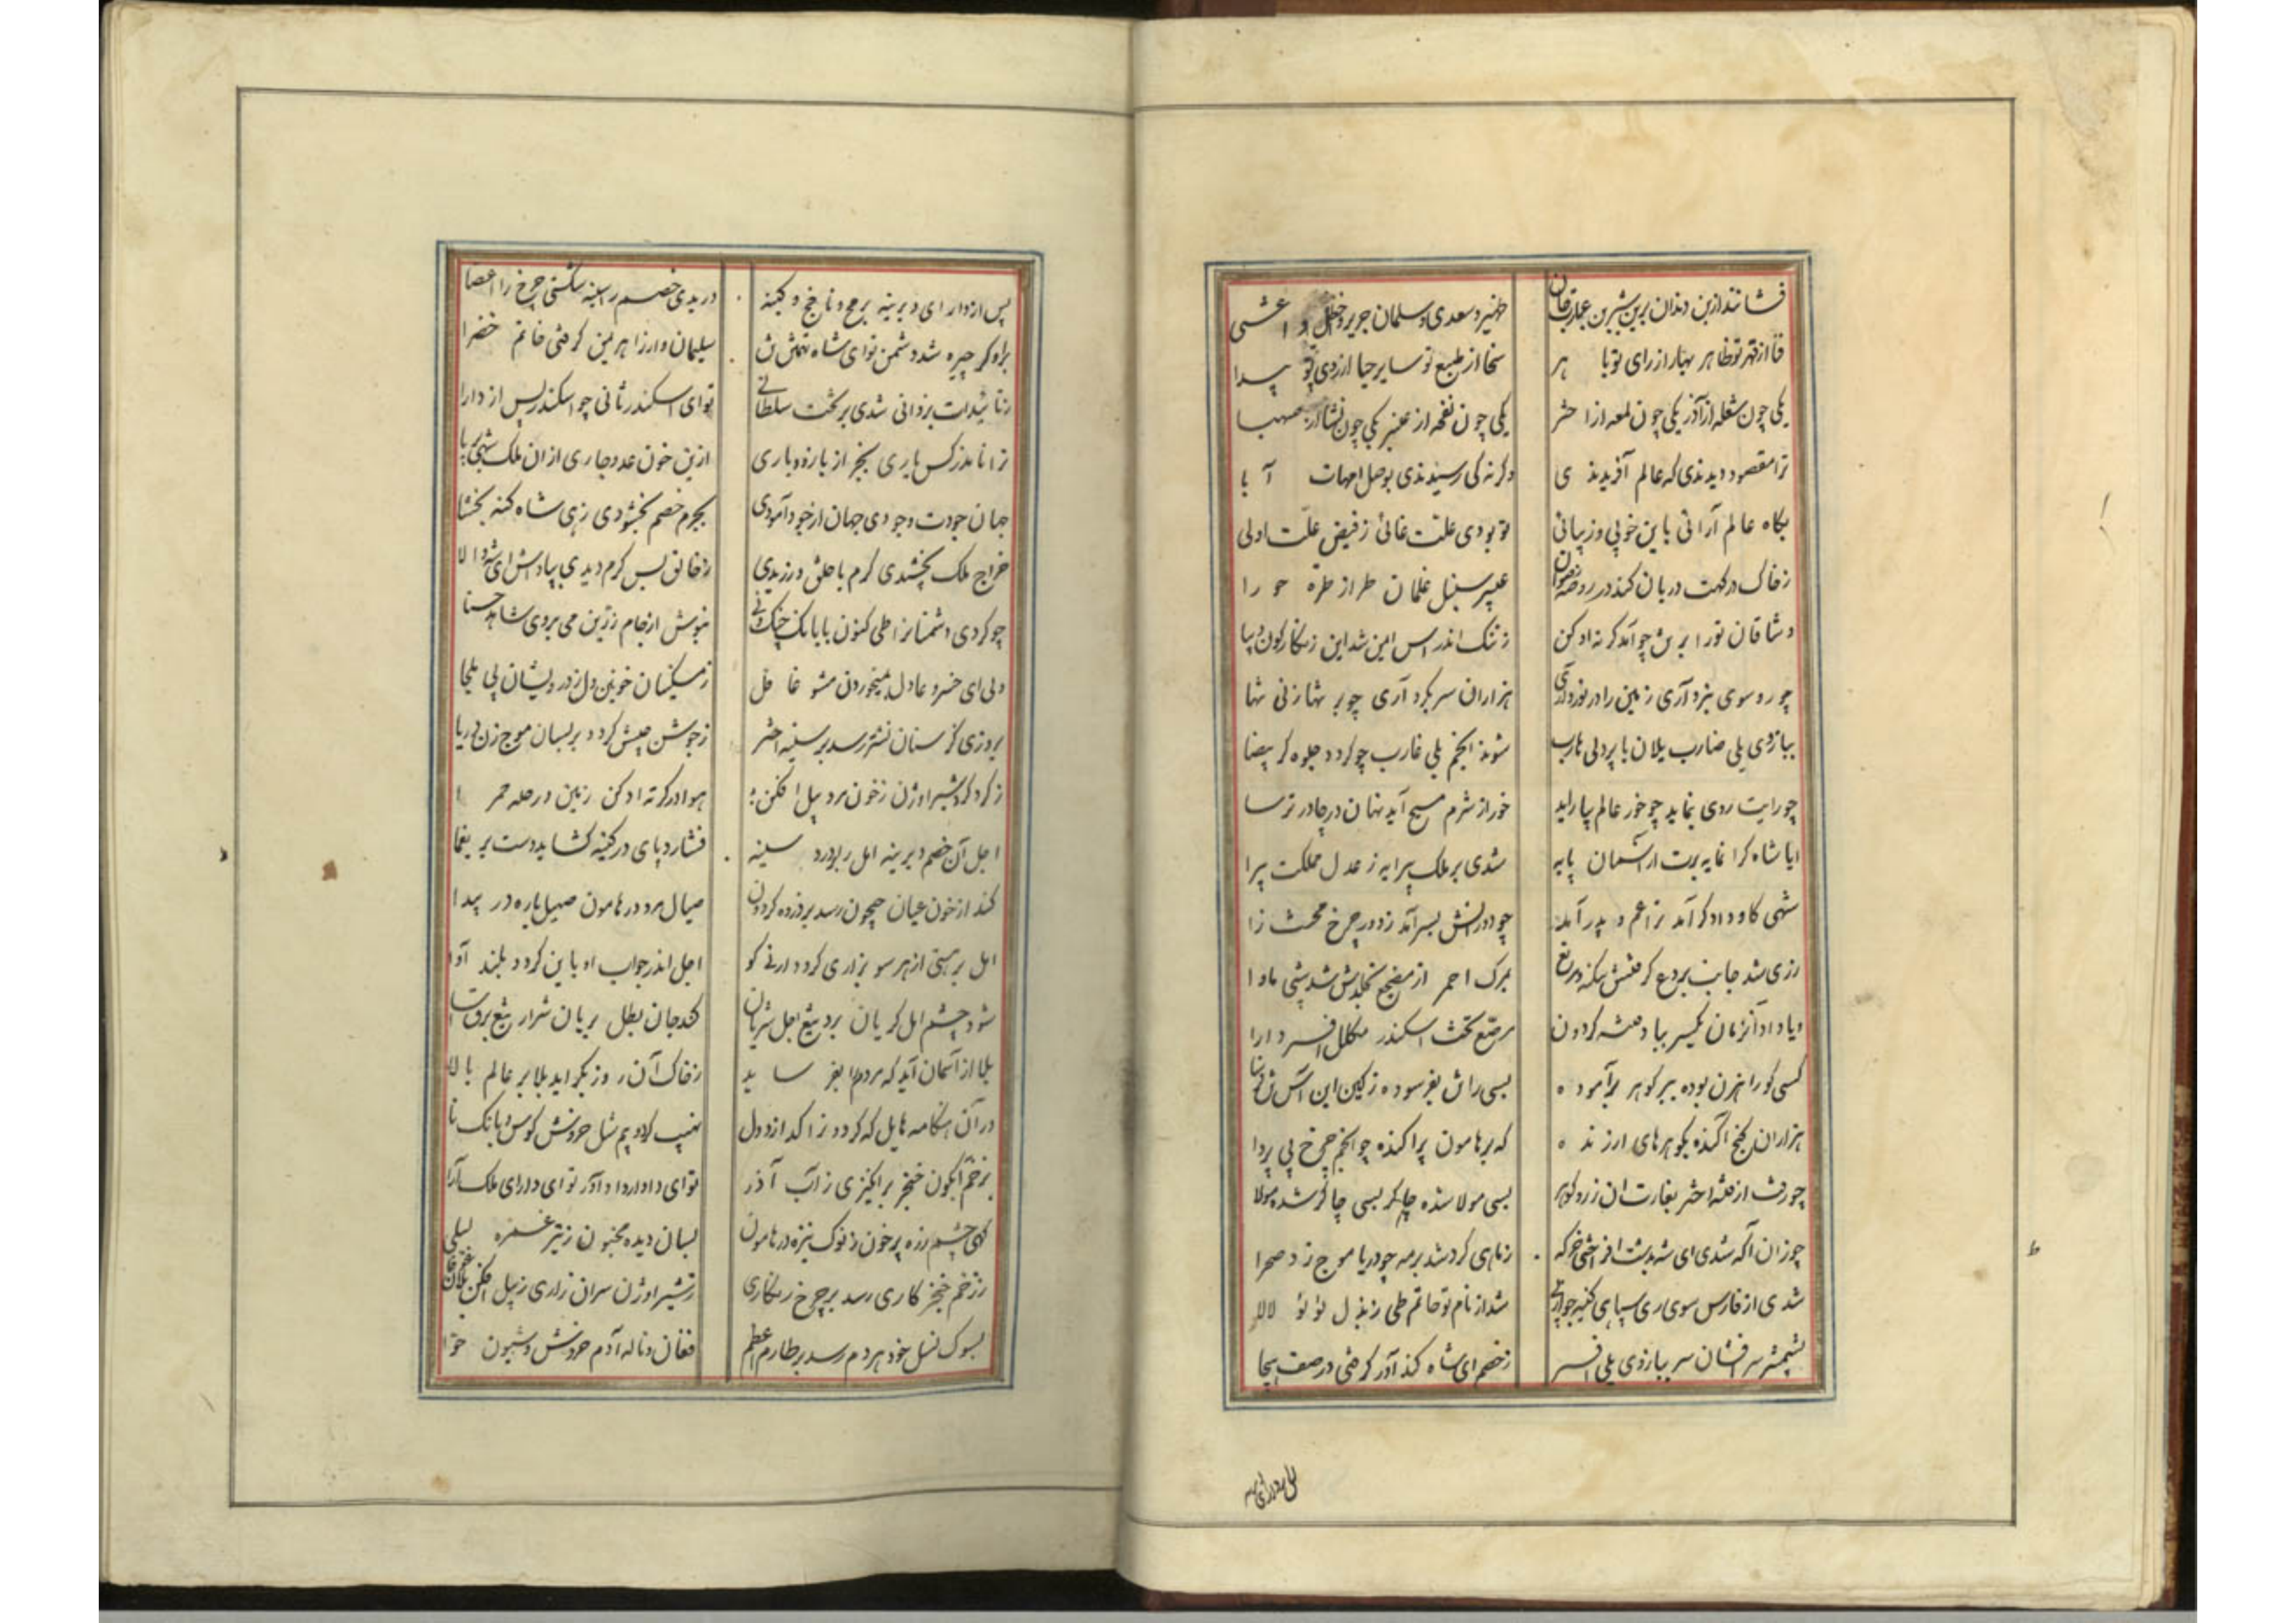 فشانند از بن دندان برین شیرین عبارت جان
ظهیر و سعدی و سلمان جریر و اخطل و اعشی
فنا از قهر تو ظاهر بهار از رای تو با هر
سخا از طبع تو سایر حیا از روی تو پیدا
یکی چون شعله از آذر یکی چون لمعه از اختر
یکی چون نفحه از عنبر یکی چون نشا از صهبا
ترا مقصود دیدندی که عالم آفریدندی
وگرنه کی رسیدندی بوصل امهات آبا
بگاه عالم آرائی باین خوبی و زیبائی
تو بودی علت غائی ز فیض علت اولی
ز خاک درگهت دربان کند در روضه رضوان
عبیر سنبل غلمان طراز طره حورا
وشاقان تو را برتن چو آمد کرته ادکن
چو رو سوی نبرد آری زمین را در نورد آری
هزاران سر بگرد آری چو بر تنها زنی تنها
ببازوی یلی ضارب یلان با پردلی هارب
شوند انجم بلی غارب چو گردد جلوه گر بیضا
چو رایت روی بنماید چو خور عالم بیاراید
خور از شرم مسیح آید نهان در چادر ترسا
ایا شاه گرانمایه برت از آسمان پایه
شدی بر ملک پیرایه ز عدل مملکت پیرا
شهی کاو دادگر آمد ترا عم و پدر آمد
چو دورانش بسر آمد ز دور چرخ محنت زا
ز ری شد جانب
بمرگ احمر از مضجع بخلدش شد پی ماوا
مرصع تخت اسکندر مکلل افسر دارا
کسی کو راهزن بوده ببر گوهر برآموده
بسی راتن بفرسوده ز کین این
هزاران گنج آگنده بگوهرهای ارزنده
که بر هامون پراکنده چو انجم چرخ بی پروا
چو رفت از فتنه اختر بغارت آن زر و گوهر
بسی مولا شده چاکر بسی چاکر شده مولا
چو زان آگه شدی ای شه بدشت افراختی خرگه
ز ماهی گرد شد بر مه چو دریا موج زد صحرا
شدی از فارس سوی ری سپاهی کینه جو از پی
شد از نام تو حاتم طی ز بذل لؤلؤ لالا
بشمشیر سرافشان سر ببازوی یلی افسر
ز خصم ای شاه کندآور گرفتی در صف هیجا
پس از دارای دیرینه برمح و ناچخ و کینه
دریدی خصم را سینه شکستی چرخ را اعضا
براو گر چیره شد دشمن تو ای شاه تهمتن تن
سلیمان وار ز اهریمن گرفتی خاتم خضرا
ز تائیدات یزدانی شدی بر تخت سلطانی
تو ای اسکندر ثانی چو اسکندر پس از دارا
ترا نامد ز کس یاری بجز از باره و باری
ازین خون عدو جاری ازان ملک شهی برپا
جهان جودت وجودی جهان از جود آمودی
بجرم خصم بخشودی زهی شاه گنه بخشا
خراج ملک بخشیدی کرم با خلق ورزیدی
ز خالق بس کرم دیدی بپاداش ای شه والا
چو کردی دشمنانرا طی کنون با بانک چنگ و نی
بنوش از جام زرین می بروی شاهد حسنا
ولی ای خسرو عادل بمیخوردن مشو غافل
ز مسکینان خونین دل ز درویشان بی ملجا
بروزی کز سنان نشتر رسد بر سینه اختر
ز جوشن جیش گردد بر بسان موج زن دریا
ز گرد گرد شیر اوژن ز خون مرد پیل افکن
هوا در کرته ادکن زمین در حله حمرا
اجل آن خصم دیرینه امل را بردرد سینه
فشارد پای در کینه گشاید دست بر یغما
کند از خون عیان جیحون رسد بر ذروه گردون
صیال مرد در هامون صهیل باره در بیدا
امل بر هستی از هر سو بزاری گردد ارنی گو
اجل اندر جواب او باین گردد بلند آوا
شود چشم امل گریان برد تیغ اجل شریان
کند جان یطل بریان شرار تیغ برق آسا
بلا از آسمان آید که مردم را بفرساید
ز خاک آن روز بگراید بلا بر عالم بالا
در آن هنگامه هایل که گردد نراکد از دول
نهیب گردد بم شامل خروش کوس و بانک نا
بزخم آبگون خنجر برانگیزی ز آب آذر
تو ای داد اور داد آور تو ای دارای ملک آرا
کهی چشم زره پر خون ز نوک نیزه در هامون
بسان دیده مجنون ز تیر غمزه لیلی
ز زخم خنجر کاری رسد بر چرخ زنگاری
ز شیر اوژن سران زاری ز پیل افکن یلان
بسوک نسل خود هر دم رسد بر طارم اعظم
فغان و ناله آدم خروش و شیون حوا